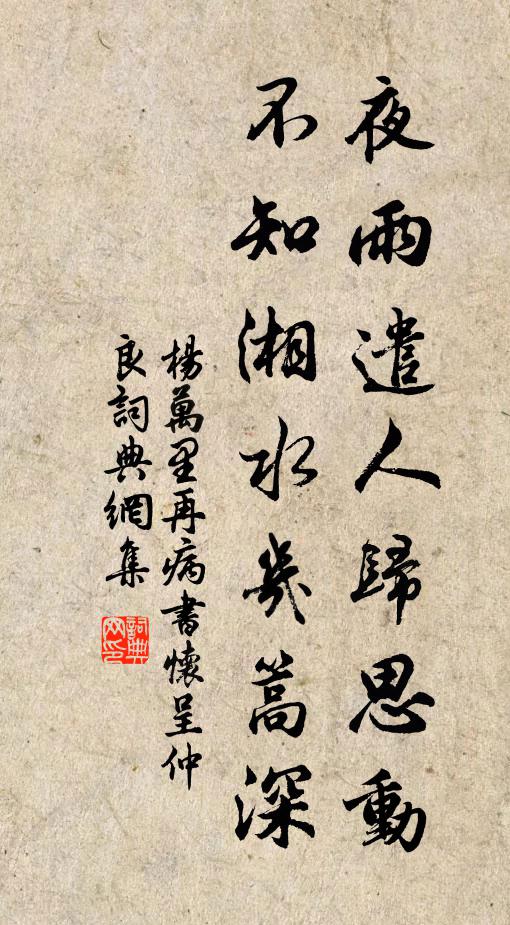 夜雨遣人歸思動
不知湘水幾篙深
楊萬里再病書懷呈仲
良詞典網集
詞典
网印